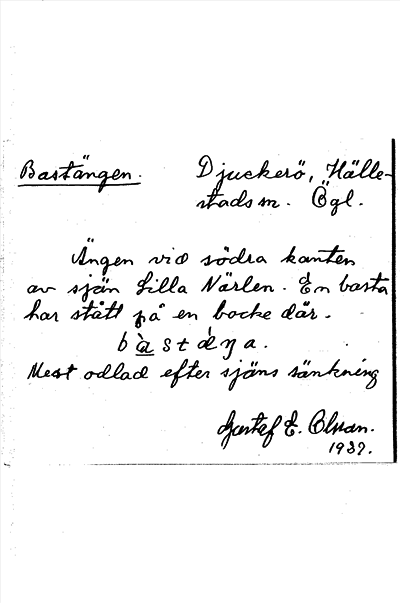 Bastängen. Djuckerö, Hälle-
stads sn. Ögl.
Ängen vid södra kanten
av sjön Lilla Närlen. En basta
har stått på en backe där.
Mest odlad efter sjöns sänkning
Gustaf E. Olsson.
1937.